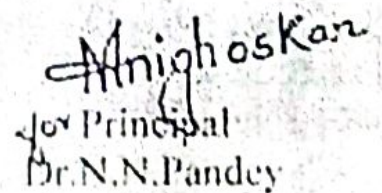 Mnighoskar
for Principal
Dr.N.N.Pandey